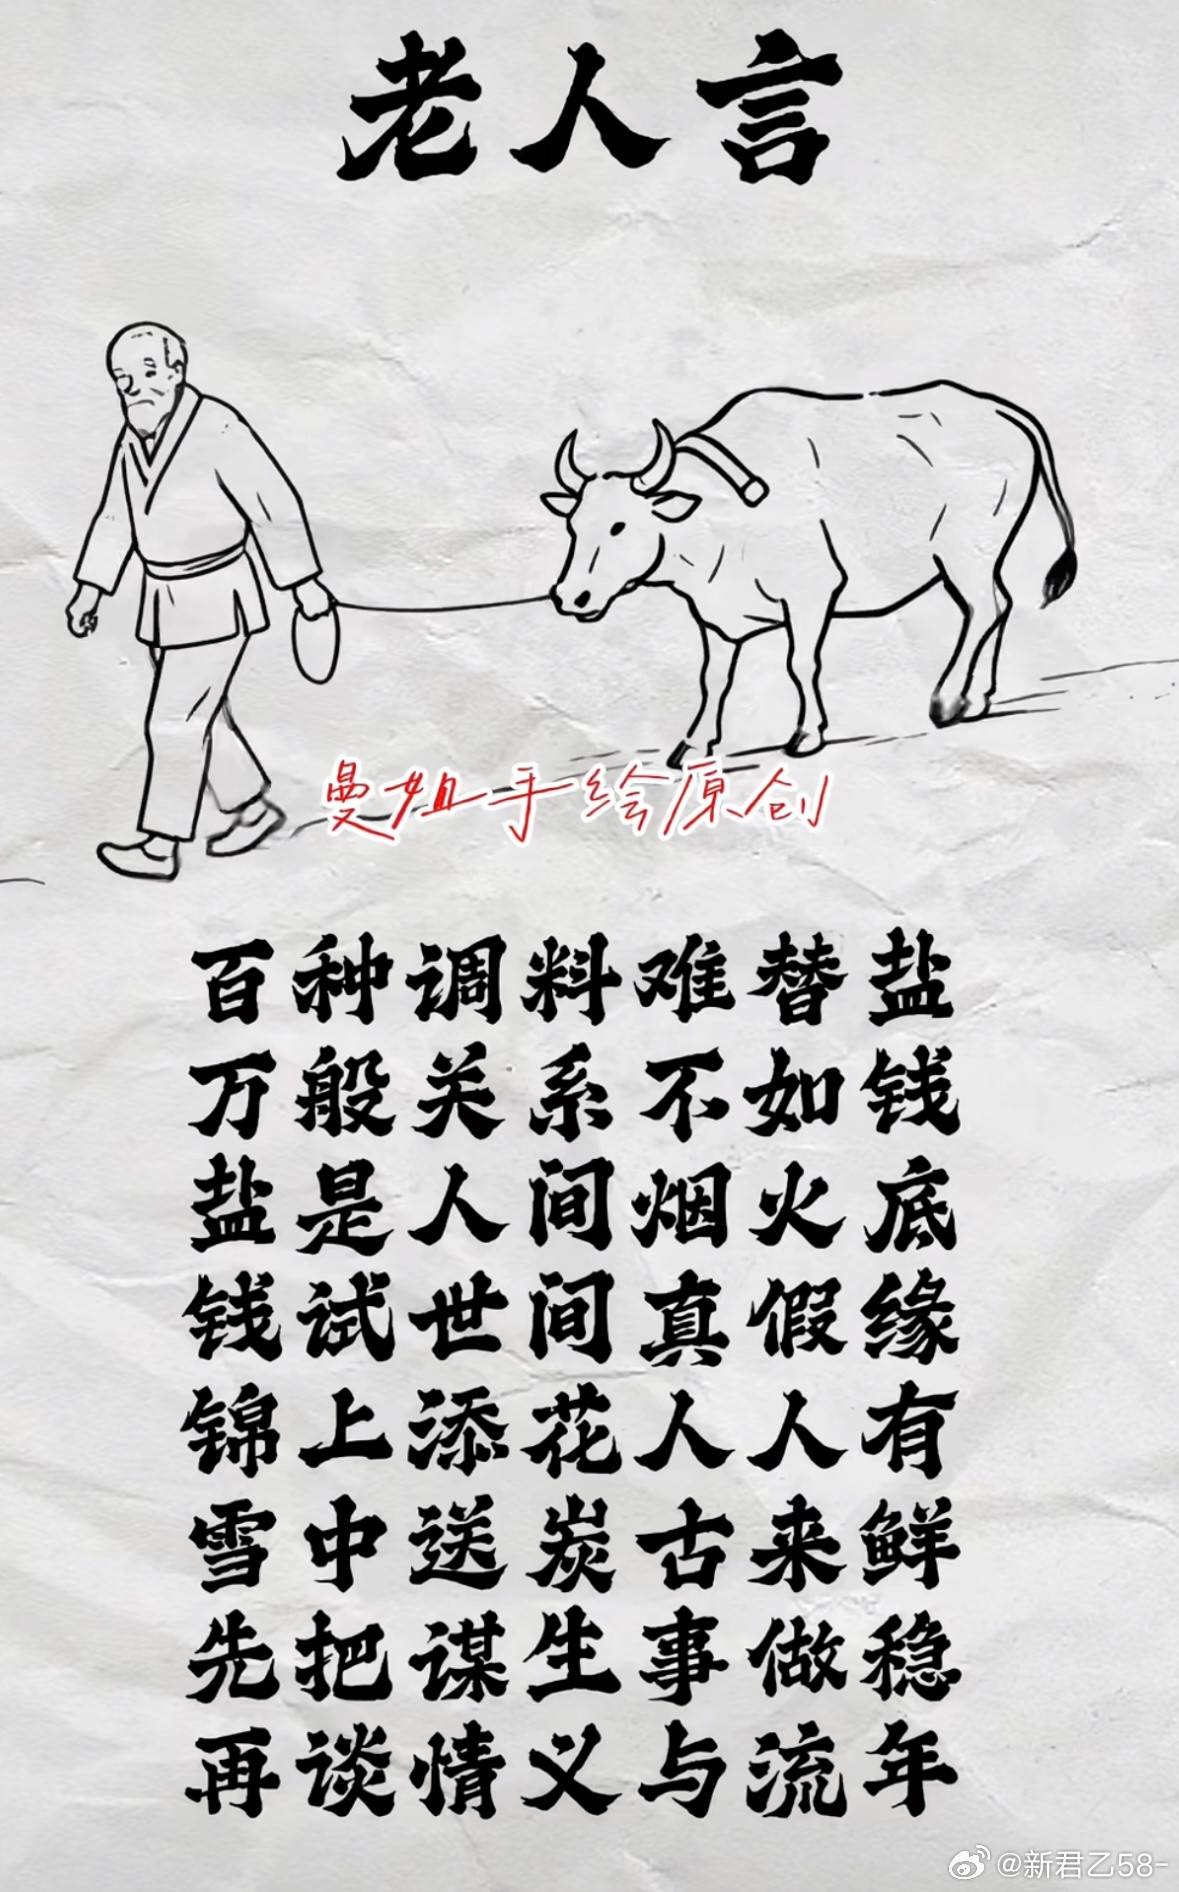 老人言
曼姐手绘原创
百种调料难替盐
万般关系不如钱
盐是人间烟火底
钱试世间真假缘
锦上添花人人有
雪中送炭古来鲜
先把谋生事做稳
再谈情义与流年
@新君乙58-